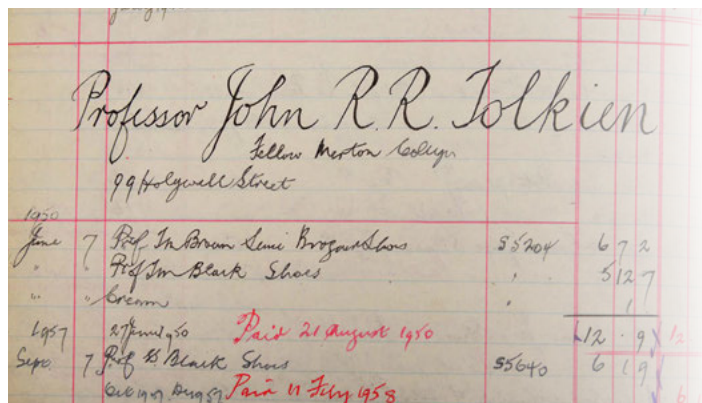 Professor John R. R. Tolkien
Fellow Merton College
99 Holywell Street
1950
June 7 Prof Tm Brown Semi Brogue Shoes S5204 6 7 2
" " Prof Tm Black Shoes " 5 12 7
" " Cream " 1
1957 27 June 1950 Paid 21 August 1950 £12 . 9
Sept. 7 Prof Black Shoes S5640 6 19
Paid 11 July 1958